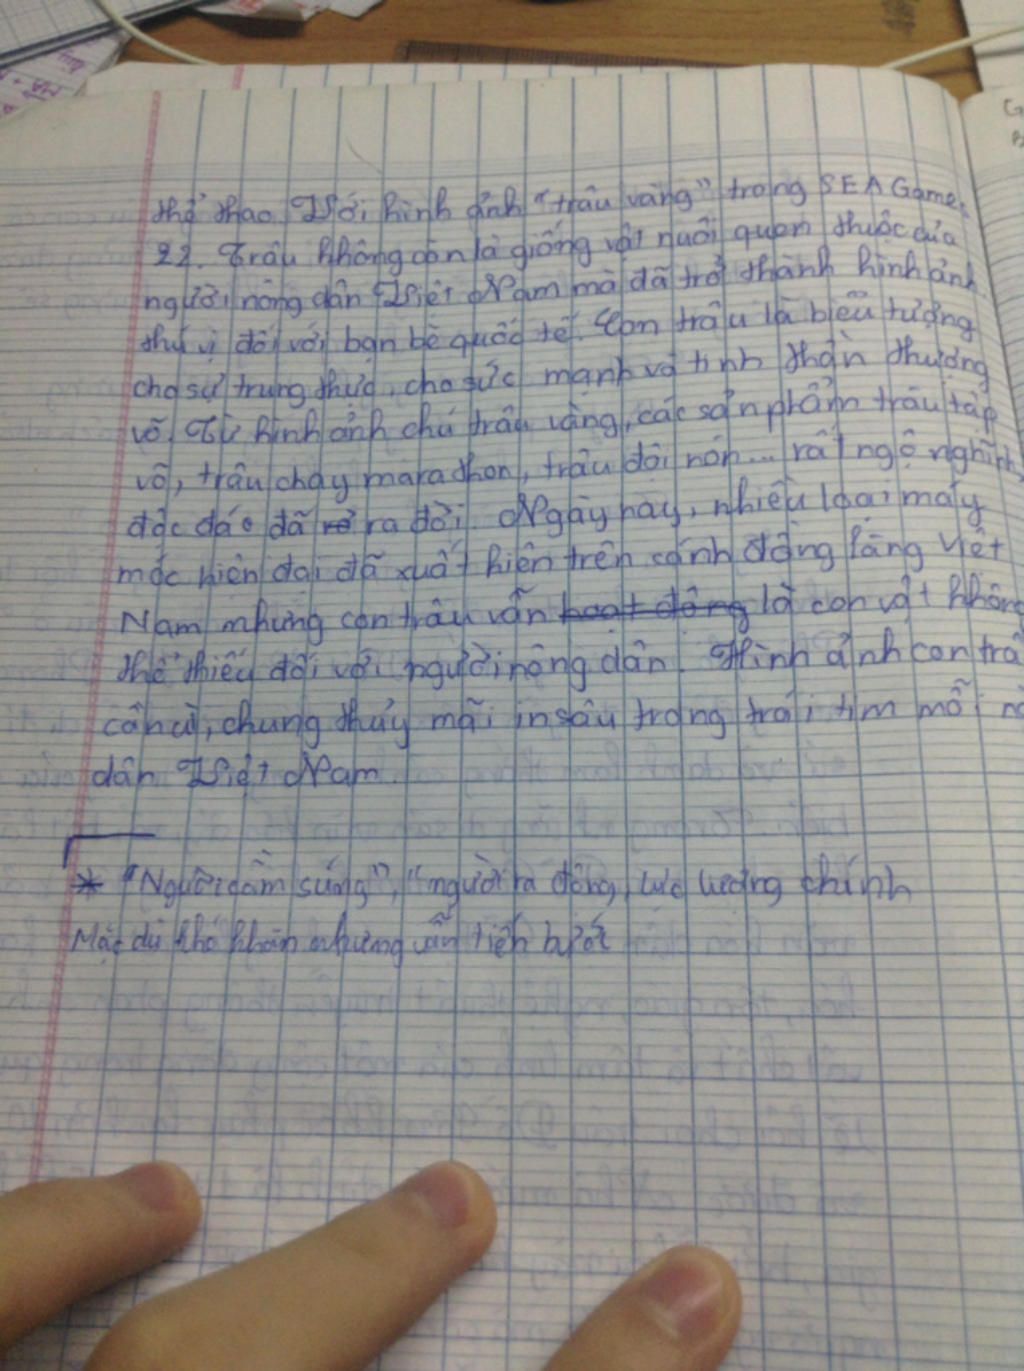 thể thao Với hình ảnh "trâu vàng" trong SEA Games
22. Trâu không còn là giống vật nuôi quen thuộc của
người nông dân Việt Nam mà đã trở thành hình ảnh
thú vị đối với bạn bè quốc tế. Con trâu là biểu tượng
cho sự trung thực, cho sức mạnh và tinh thần thượng
võ. Từ hình ảnh chú trâu vàng, các sản phẩm trâu tập
võ, trâu chạy marathon, trâu đội nón... rất ngộ nghĩnh,
độc đáo đã ra đời. Ngày nay, nhiều loại máy
móc hiện đại đã xuất hiện trên cánh đồng làng Việt
Nam nhưng con trâu vẫn hoạt động là con vật không
thể thiếu đối với người nông dân. Hình ảnh con trâ
cần cù, chung thủy mãi in sâu trong trái tim mỗi
dân Việt Nam
* "Người cầm súng", "người ra đồng, lực lượng chính
Mặc dù khó khăn nhưng vẫn tiến bước